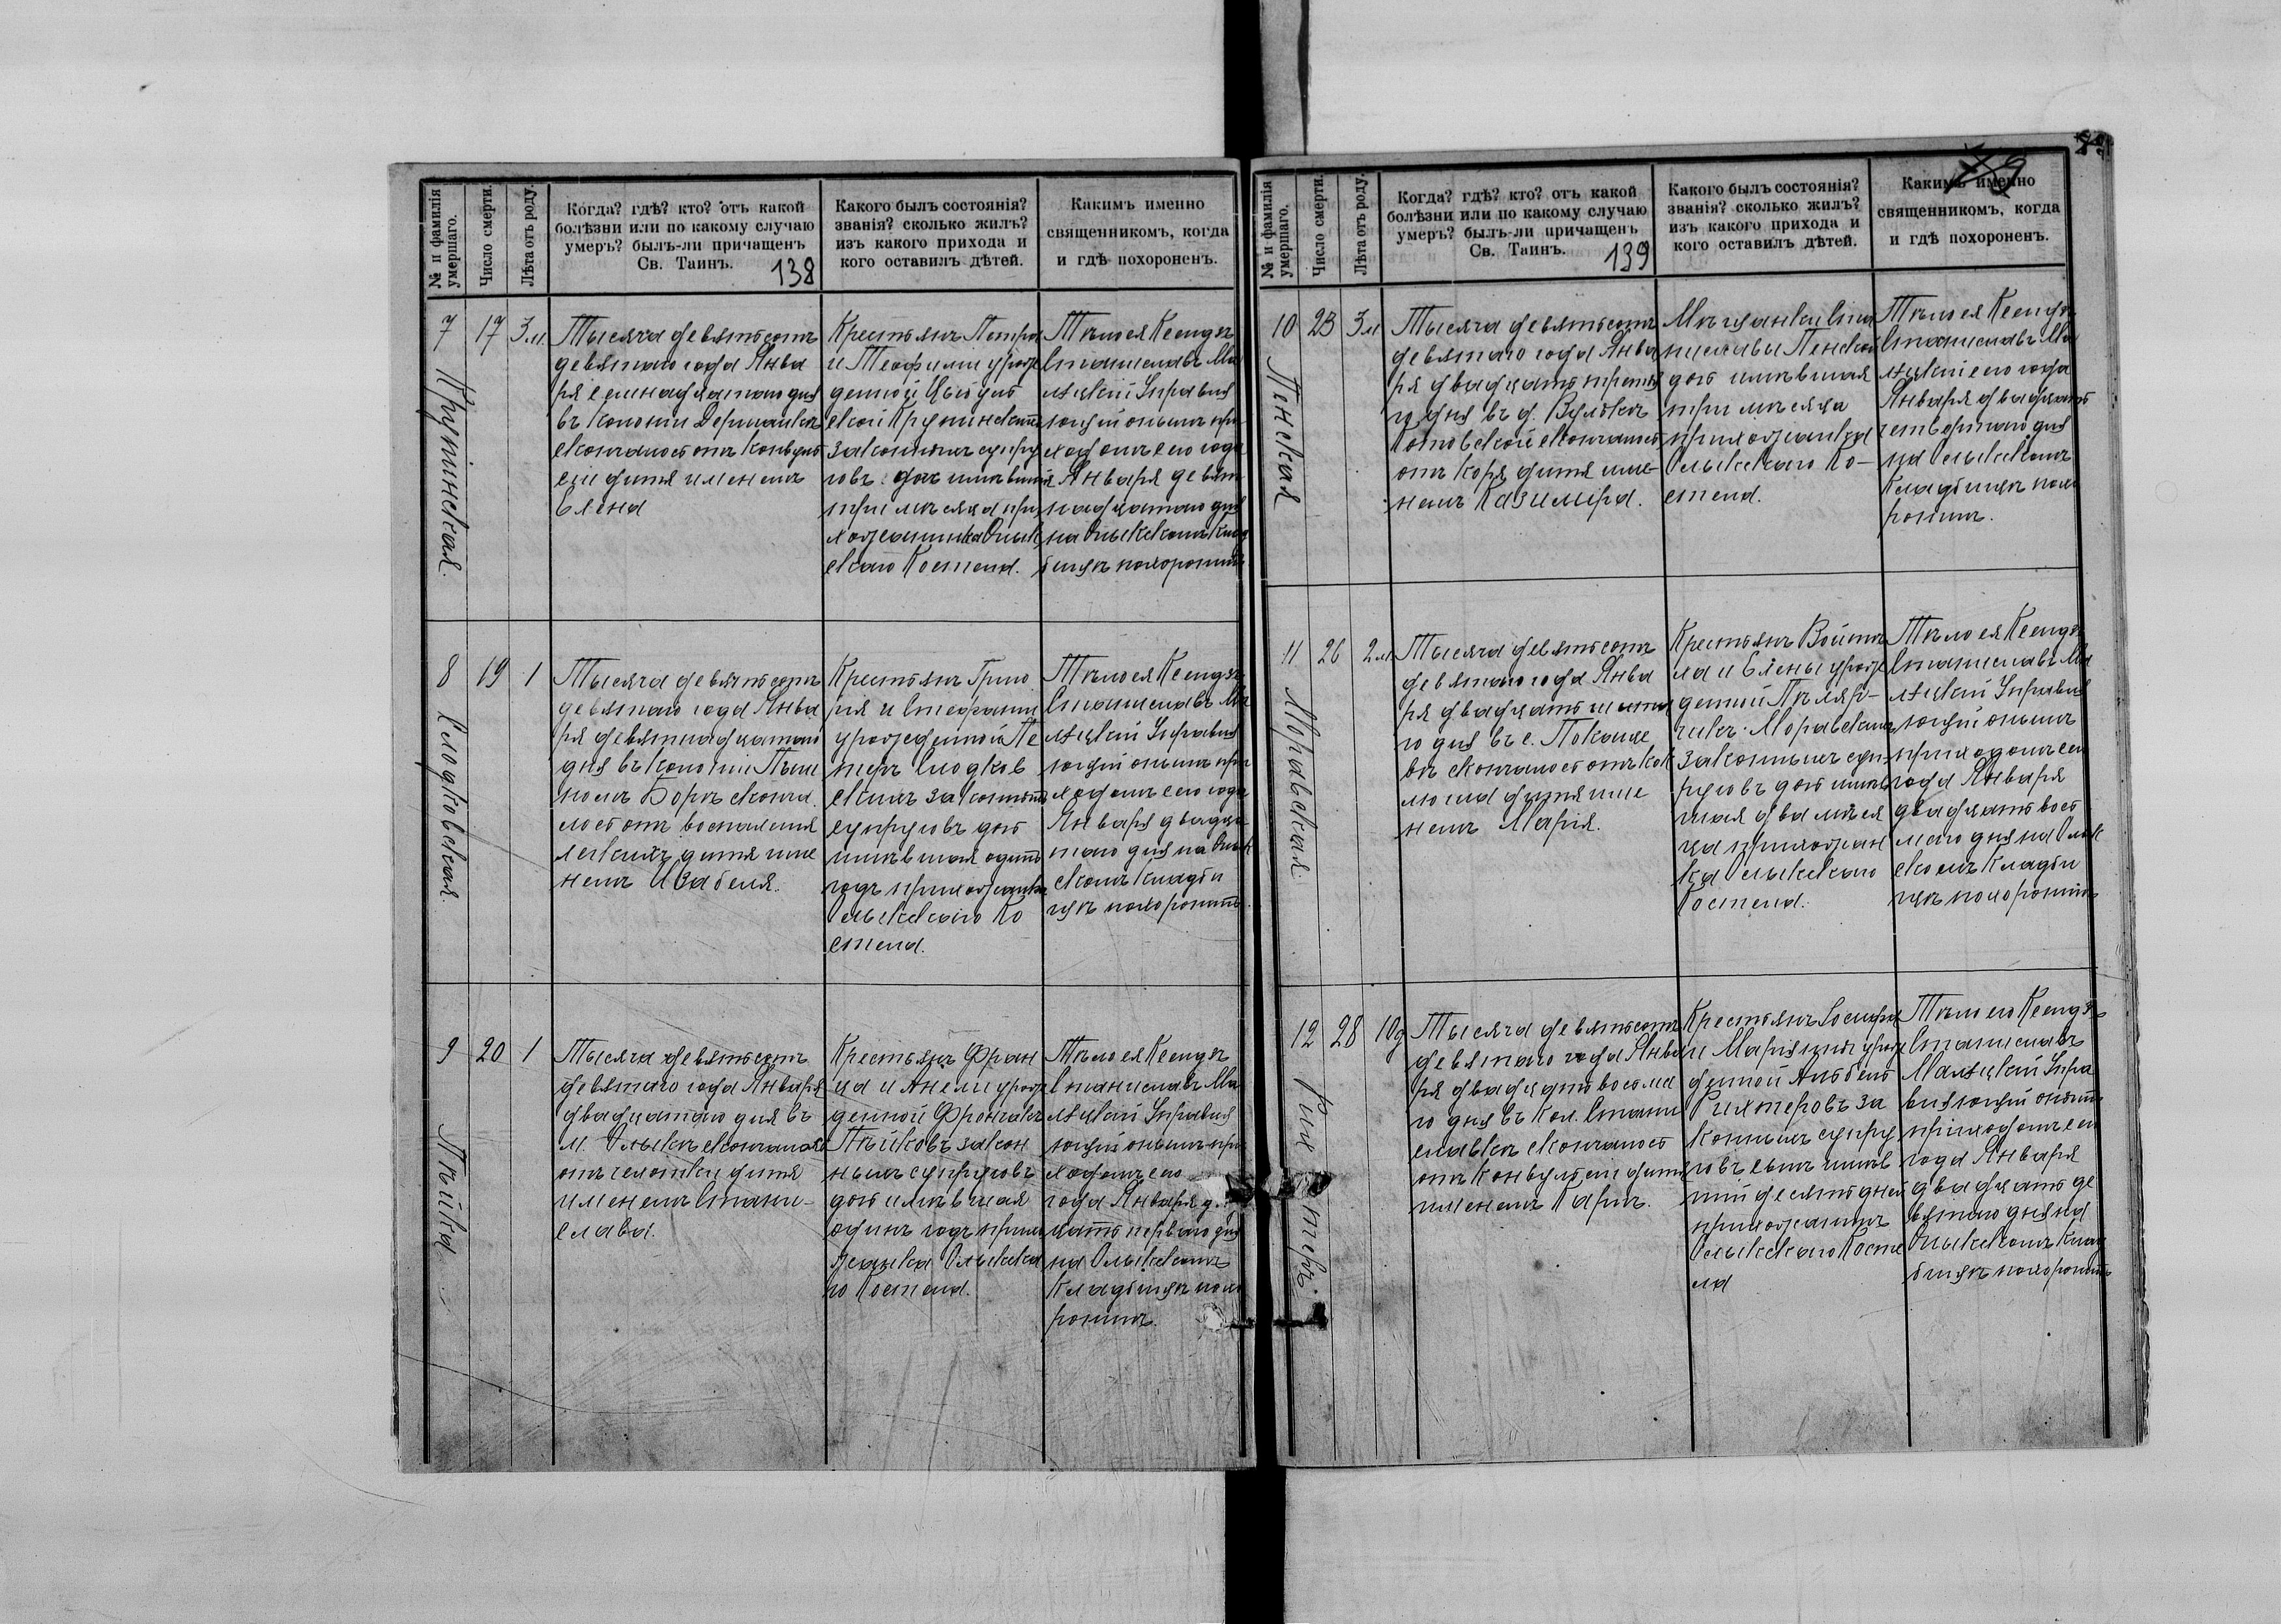 № и фамилія умершаго.
Число смерти.
Лѣта отъ роду.
Когда? гдѣ? кто? отъ какой
болѣзни или по какому случаю
умеръ? былъ-ли причащенъ
Св. Таинъ.
138
Какого былъ состоянія?
званія? сколько жилъ?
изъ какого прихода и
кого оставилъ дѣтей.
Какимъ именно
священникомъ, когда
и гдѣ похороненъ.
7
Крупинская.
17
3 м.
Тысяча девятьсотъ
девятаго года Янва
ря семнадцатаго дня
въ колоніи Дерманкѣ
скончалась отъ конвул
сіи дитя именемъ
Елена
Крестьянъ Петра
и Теофили урож
денной
Крупинскихъ
законныхъ супру
говъ дочь имѣвшая
три мѣсяца при
хожанка Олык
скаго Костела.
Тѣло ея Ксендзъ
Станиславъ Ма
лѣцкій Управля
ющій онымъ при
ходомъ сего года
Января девят
надцатаго дня
на Олыкскомъ Клад
бищѣ похоронилъ.
8
Слодковская.
19
1
Тысяча девятьсотъ
девятаго года Янва
ря девятнадцатаго
дня въ колоніи
номъ Борѣ сконча
лась отъ воспаленія
легкихъ дитя име
немъ Изабеля.
Крестьянъ Григо
рія и Стефаніи
урожденной Пе
теръ Слодков
скихъ законныхъ
супруговъ дочь
имѣвшая одинъ
годъ прихожанка
Олыкскаго Ко
стела.
Тѣло ея Ксендзъ
Станиславъ Ма
лѣцкій Управля
ющій онымъ при
ходомъ сего года
Января двадца
таго дня на Олык
скомъ Кладби
щѣ похоронилъ.
9
Пѣйка
20
1
Тысяча девятьсотъ
девятаго года Января
двадцатаго дня въ
м. Олыкѣ скончалась
отъ сухотки дитя
именемъ Стани-
слава.
Крестьянъ Фран
ца и Анели урож
денной
Пѣйковъ закон
ныхъ супруговъ
дочь имѣвшая
одинъ годъ прихо
жанка Олыкска
го Костела.
Тѣло ея Ксендзъ
Станиславъ Ма
лѣцкій Управля
ющій онымъ при
ходомъ сего
года Января д
цать перваго дня
на Олыкскомъ
Кладбищѣ похо
ронилъ.
№ и фамилія умершаго.
Число смерти.
Лѣта отъ роду.
Когда? гдѣ? кто? отъ какой
болѣзни или по какому случаю
умеръ? былъ-ли причащенъ
Св. Таинъ.
139
Какого былъ состоянія?
званія? сколько жилъ?
изъ какого прихода и
кого оставилъ дѣтей.
Какимъ именно
священникомъ, когда
и гдѣ похороненъ.
10
Пенская
23
3 м
Тысяча девятьсотъ
девятаго года Янва
ря двадцать третья
го дня въ д. Вулькѣ
Котовской скончалась
отъ кори дитя име-
немъ Казимира.
Мѣщанки Ста
ниславы Пенской
дочь имѣвшая
три мѣсяца
прихожанка
Олыкскаго Ко-
стела.
Тѣло ея Ксендзъ
Станиславъ Ма
лѣцкій сего года
Января двадцать
четвертаго дня
на Олыкскомъ
Кладбищѣ похо
ронилъ.
11
Моравская.
26
2 м
Тысяча девятьсотъ
девятаго года Янва
ря двадцать шеста
го дня въ с. Покаще
вѣ скончалась отъ кок
люша дитя име
немъ Марія.
Крестьянъ Войтѣ
ха и Елены урож
денной
Моравскихъ
законныхъ суп
руговъ дочь имѣв
шая два мѣся
ца прихожан
ка Олыкскаго
Костела.
Тѣло ея Ксендзъ
Станиславъ Ма
лѣцкій Управля
ющій онымъ
приходомъ сего
года Января
двадцать вось
маго дня на Олык
скомъ Кладби
щѣ похоронилъ
12
Рихтеръ.
28
10 д
Тысяча девятьсотъ
девятаго года Янва
ря двадцать восьма
го дня въ кол. Стани
славкѣ скончалось
отъ конвульсіи дитя
именемъ Карлъ.
Крестьянъ Іосифа
и Маріянны урож
денной
Рихтеровъ за
конныхъ супру
говъ сынъ имѣв
шій десять дней
прихожанинъ
Олыкскаго Косте
ла
Тѣло его Ксендзъ
Станиславъ
Малѣцкій Упра
вляющій онымъ
приходомъ сего
года Января
двадцать де
вятаго дня на
Олыкскомъ Клад
бищѣ похоронилъ